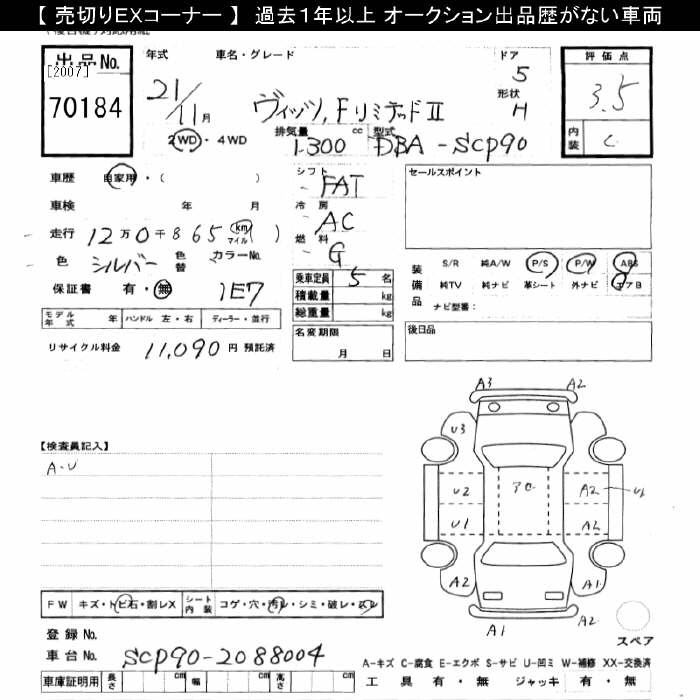 【 売切りEXコーナー 】 過去１年以上 オークション出品歴がない車両
出品No.
[2007]
70184
年式
21/11月
車名・グレード
ヴィッツ,FリミテッドⅡ
ドア
5
形状
H
評価点
3.5
内装
C
2WD・4WD
排気量
1300 cc
型式
DBA-SCP90
車歴 自家用・( )
車検 年 月
走行 12万0千865 km マイル ( )
色 シルバー 色替 カラーNo.
1E7
保証書 有・無
シフト
FAT
冷房
AC
燃料
G
乗車定員 5 名
積載量 kg
総重量 kg
名変期限
月 日
セールスポイント
装備品
S/R 純A/W P/S P/W ABS
純TV 純ナビ 革シート 外ナビ エアB
ナビ型番:
後日品
モデル年式 年 ハンドル 左・右 ディーラー・並行
リサイクル料金 11,090 円 預託済
【検査員記入】
A-U
A3 A2
U3
U2 A2 U1
U1 A2
A2 A1
A1 A2
スペア
FW キズ・トビ石・割レX シート内装 コゲ・穴・汚レ・シミ・破レ・スレ
登録 No.
車台 No. SCP90-2088004
車庫証明用 長さ cm 幅 cm 高さ cm
A-キズ C-腐食 E-エクボ S-サビ U-凹ミ W-補修 XX-交換済
工具 有・無 ジャッキ 有・無